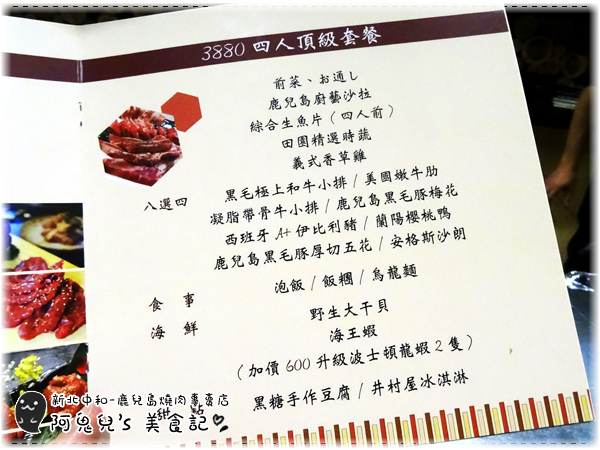 3880 四人頂級套餐
前菜、お通し
鹿兒島廚藝沙拉
綜合生魚片(四人前)
田園精選時蔬
義式香草雞
八選四
黑毛極上和牛小排 / 美國嫩牛肋
凝脂帶骨牛小排 / 鹿兒島黑毛豚梅花
西班牙 A+ 伊比利豬 / 蘭陽櫻桃鴨
鹿兒島黑毛豚厚切五花 / 安格斯沙朗
食事 泡飯 / 飯糰 / 烏龍麵
海鮮 野生大干貝
海王蝦
(加價 600 升級波士頓龍蝦 2 隻)
甜點 黑糖手作豆腐 / 井村屋冰淇淋
新北中和-鹿兒島燒肉專賣店
阿兒兒's 美食記